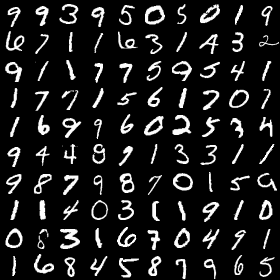 9 9 3 9 5 0 5 0 1 9
6 7 1 1 6 3 1 4 3 2
9 1 1 7 7 5 9 5 4 1
1 7 7 1 5 6 1 2 0 7
1 6 9 9 6 0 2 5 3 4
9 4 4 8 9 1 3 3 1 1
9 8 7 9 8 7 0 1 5 9
1 1 4 0 3 1 1 9 1 0
0 8 3 1 6 7 0 4 9 1
1 6 8 4 5 8 7 9 6 5